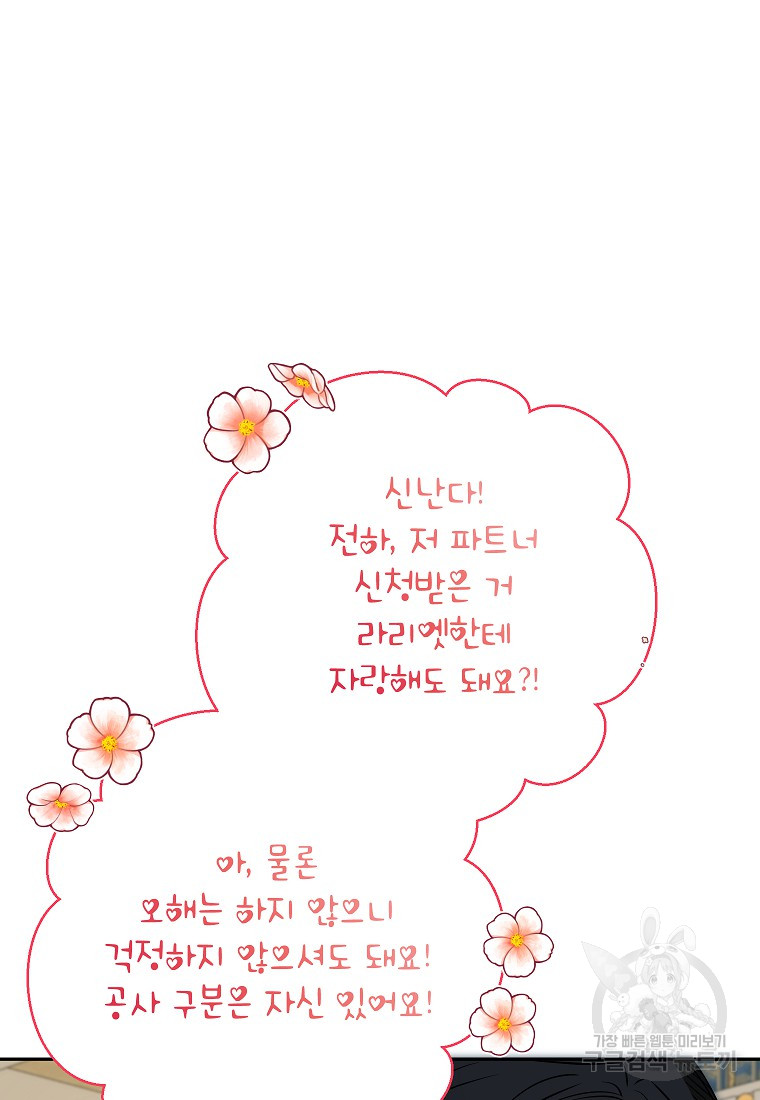 신난다!
전하, 저 파트너
신청받은 거
라리엣한테
자랑해도 돼요?!
아, 물론
오해는 하지 않으니
걱정하지 않으셔도 돼요!
공사 구분은 자신 있어요!
가장 빠른 웹툰 미리보기
구글검색 뉴토끼